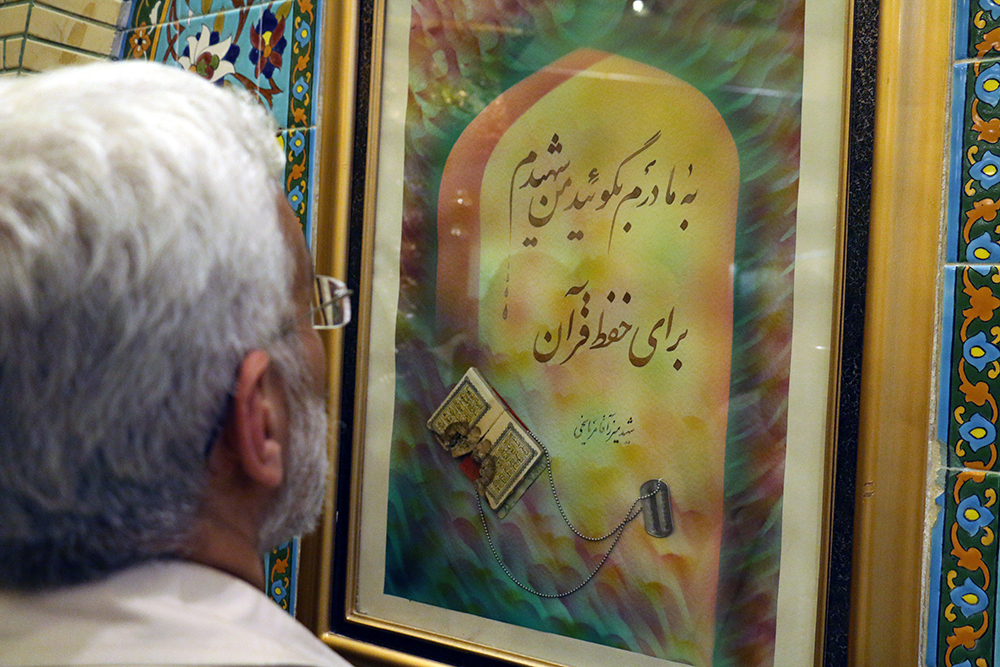 به مادرم بگوئید من شهیدم
برای حفظ قرآن
شهید میرزا آقا